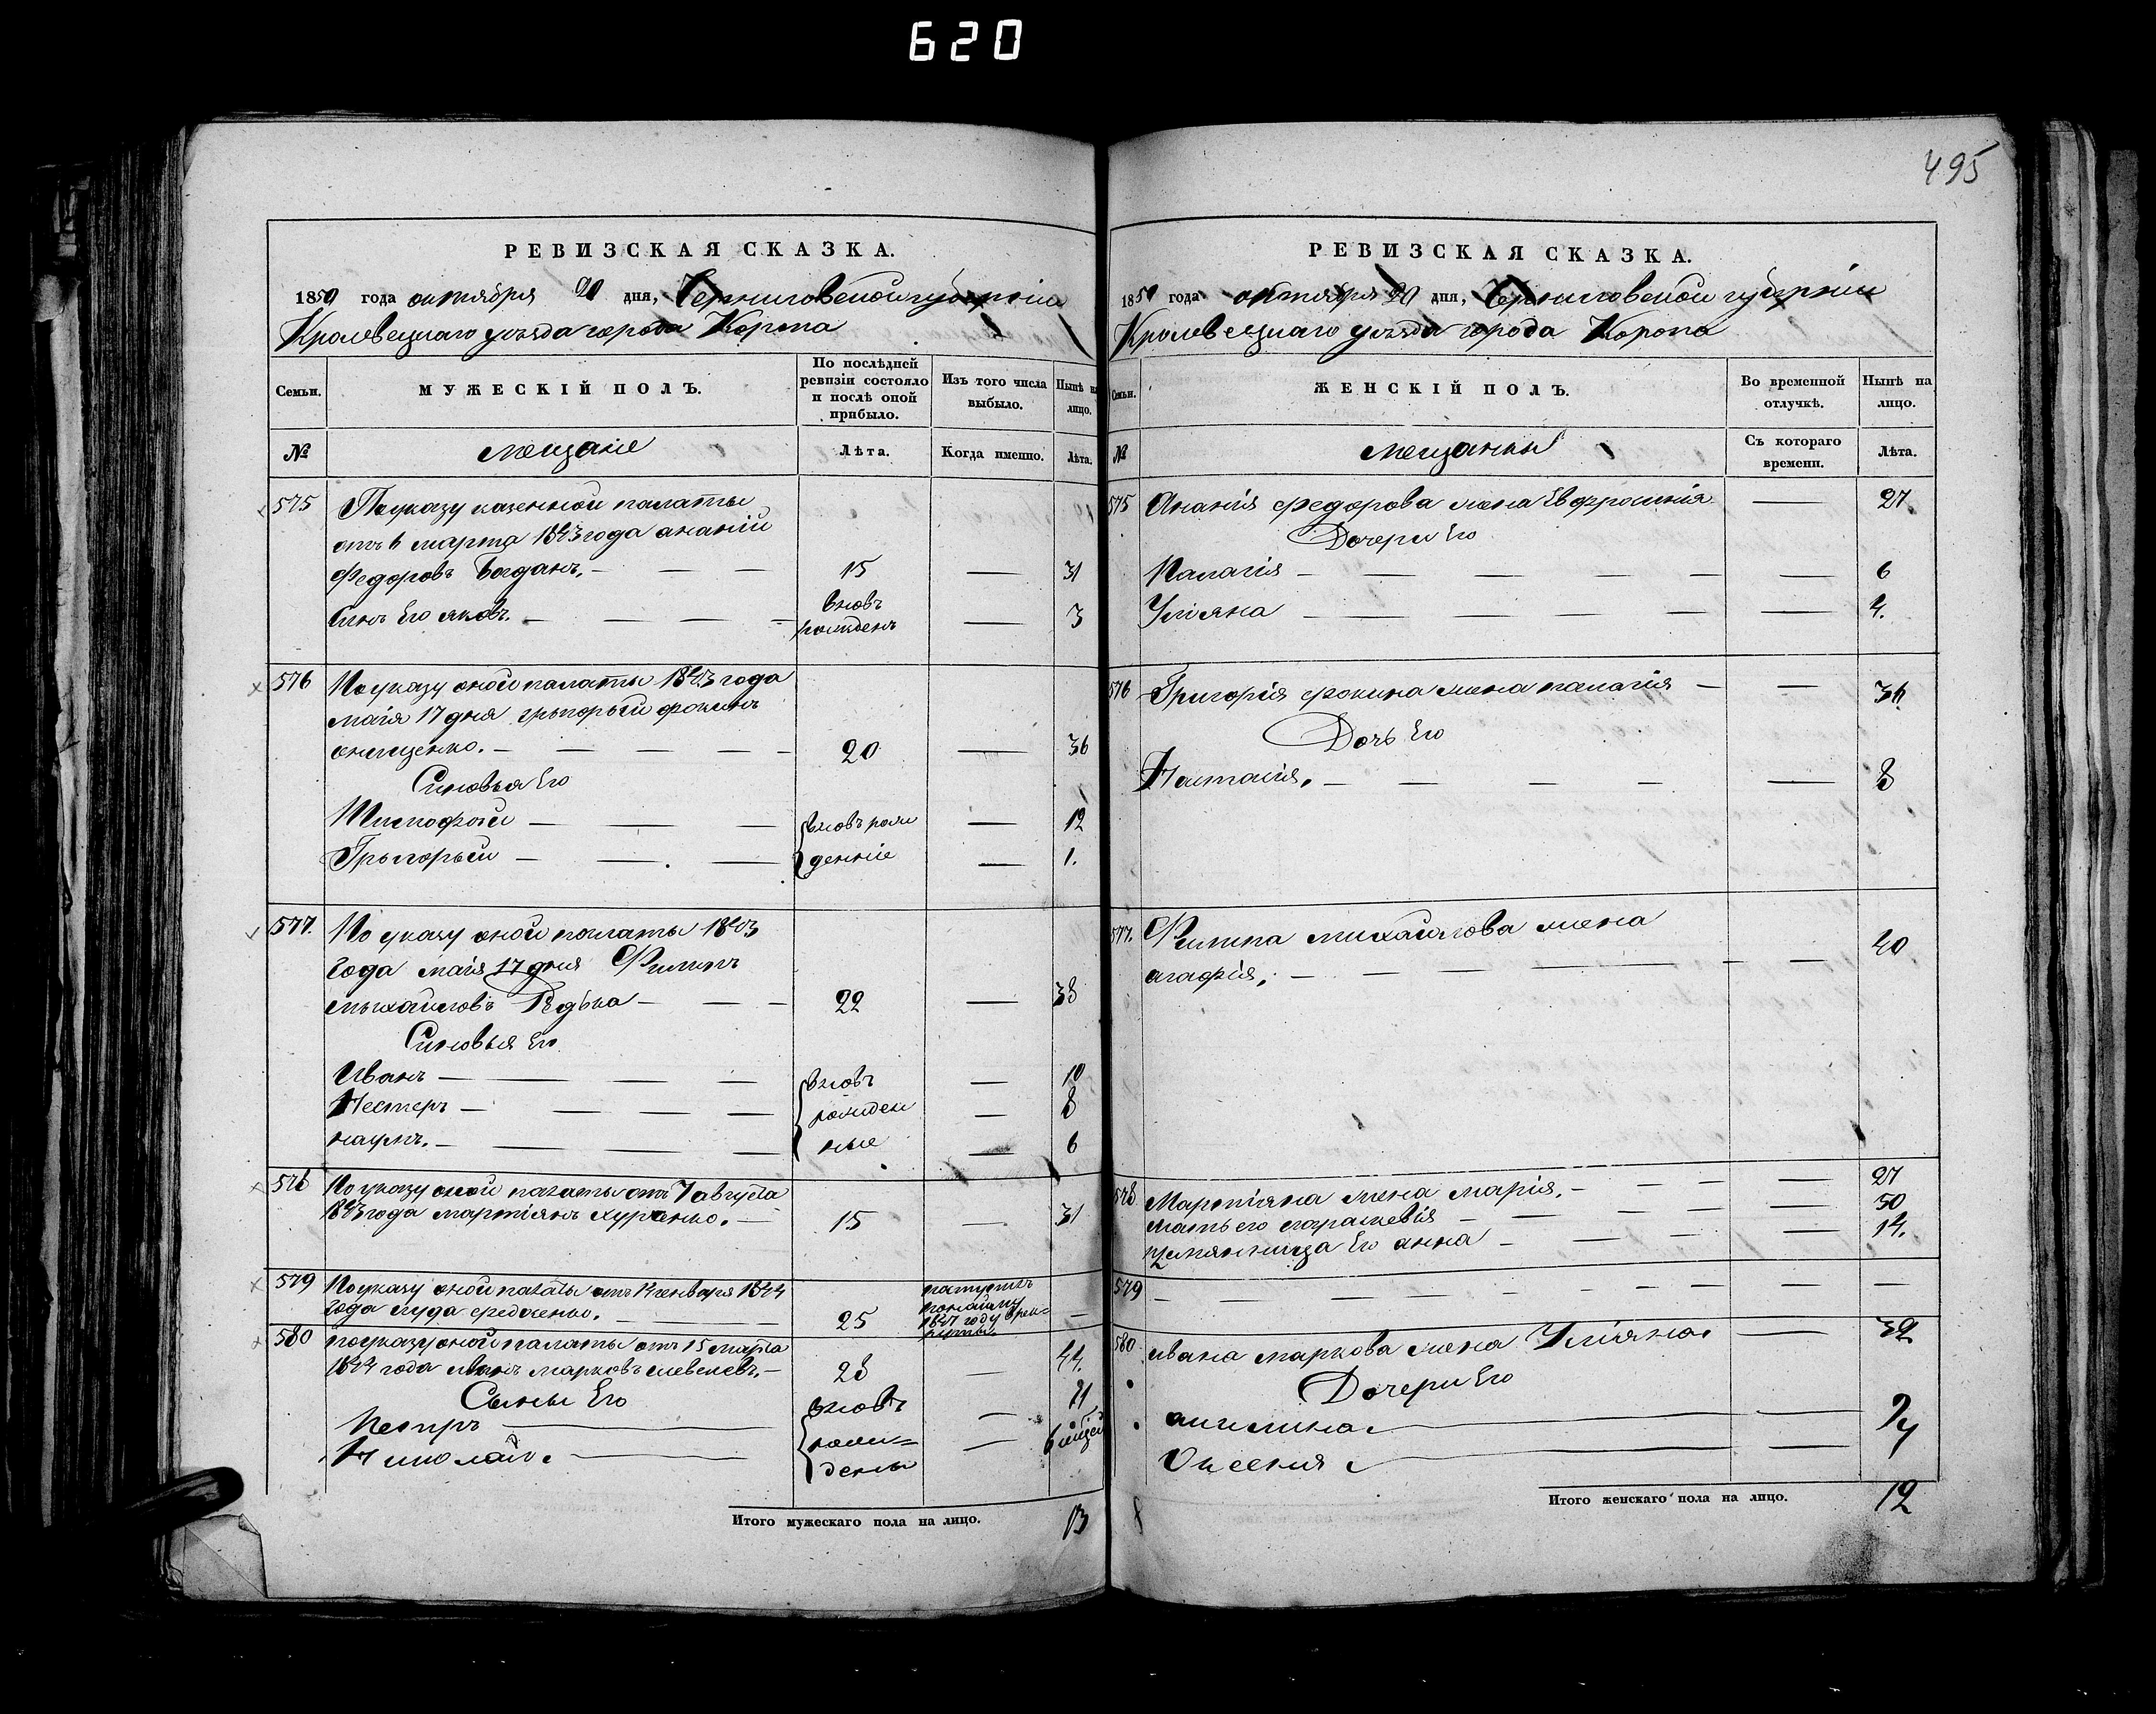 620
495
РЕВИЗСКАЯ СКАЗКА.
1850 года октября 20 дня, Черниговской губерніи
Кролевецкаго уѣзда города Коропа
Семьи.
МУЖЕСКІЙ ПОЛЪ.
По послѣдней ревизіи состояло и послѣ оной прибыло.
Изъ того числа выбыло.
Нынѣ на лицо.
№
мещане
Лѣта.
Когда именно.
Лѣта.
575 По указу казенной палаты
отъ 6 марта 1843 года ананій
Федоровъ Богданъ. 15 — 31
Синъ Его яковъ. вновь рожденъ — 3
576 По указу оной палаты 1843 года
маія 17 дня грыгорый фокинъ
онищенко. 20 — 36
Синовья Его
Тимофей — 12
Грыгорый — 1.
вновь рож
денніе
577. По указу оной палаты 1843
года маія 17 дня Филипъ
мыхайловъ Редька 22 — 38
Синовья Его
Иванъ — 10
Нестеръ — 8
наумъ. — 6
вновь
рожден
ные
578 По указу оной палаты отъ 7 августа
1843 года мартіянъ хурсенко. 15 — 31
579 По указу оной палаты отъ генваря 1844
года 25
1847 году в рек=
руты. —
580 по указу оной палаты отъ 15 марта
1844 года иванъ марковъ 28 — 44.
Сыны Его
Петръ — 11
Николай. — 6
вновь
рож=
дены
Итого мужескаго пола на лицо. 13
РЕВИЗСКАЯ СКАЗКА.
1850 года октября 20 дня, Черниговской губерніи
Кролевецкаго уѣзда города Коропа
Семьи.
ЖЕНСКІЙ ПОЛЪ.
Во временной отлучкѣ.
Нынѣ на лицо.
№
мещанки
Съ котораго времени.
Лѣта.
575 Ананія Федорова жена Евфросинія — 27.
Дочери Его
Палагія — 6
Уліяна — 4.
576 Григорія фокина жена палагія — 36
Дочь Его
Настасія. — 8
577. Филипа михайлова жена
агафія. — 40
578 Мартіяна жена марія. — 27
мать его параскевія — 50
племянница Его анна — 14.
579 —
580 ивана маркова жена Уліяна. — 32
Дочери Его
ангилина — 9
Оксенія — 4
Итого женскаго пола на лицо. 12